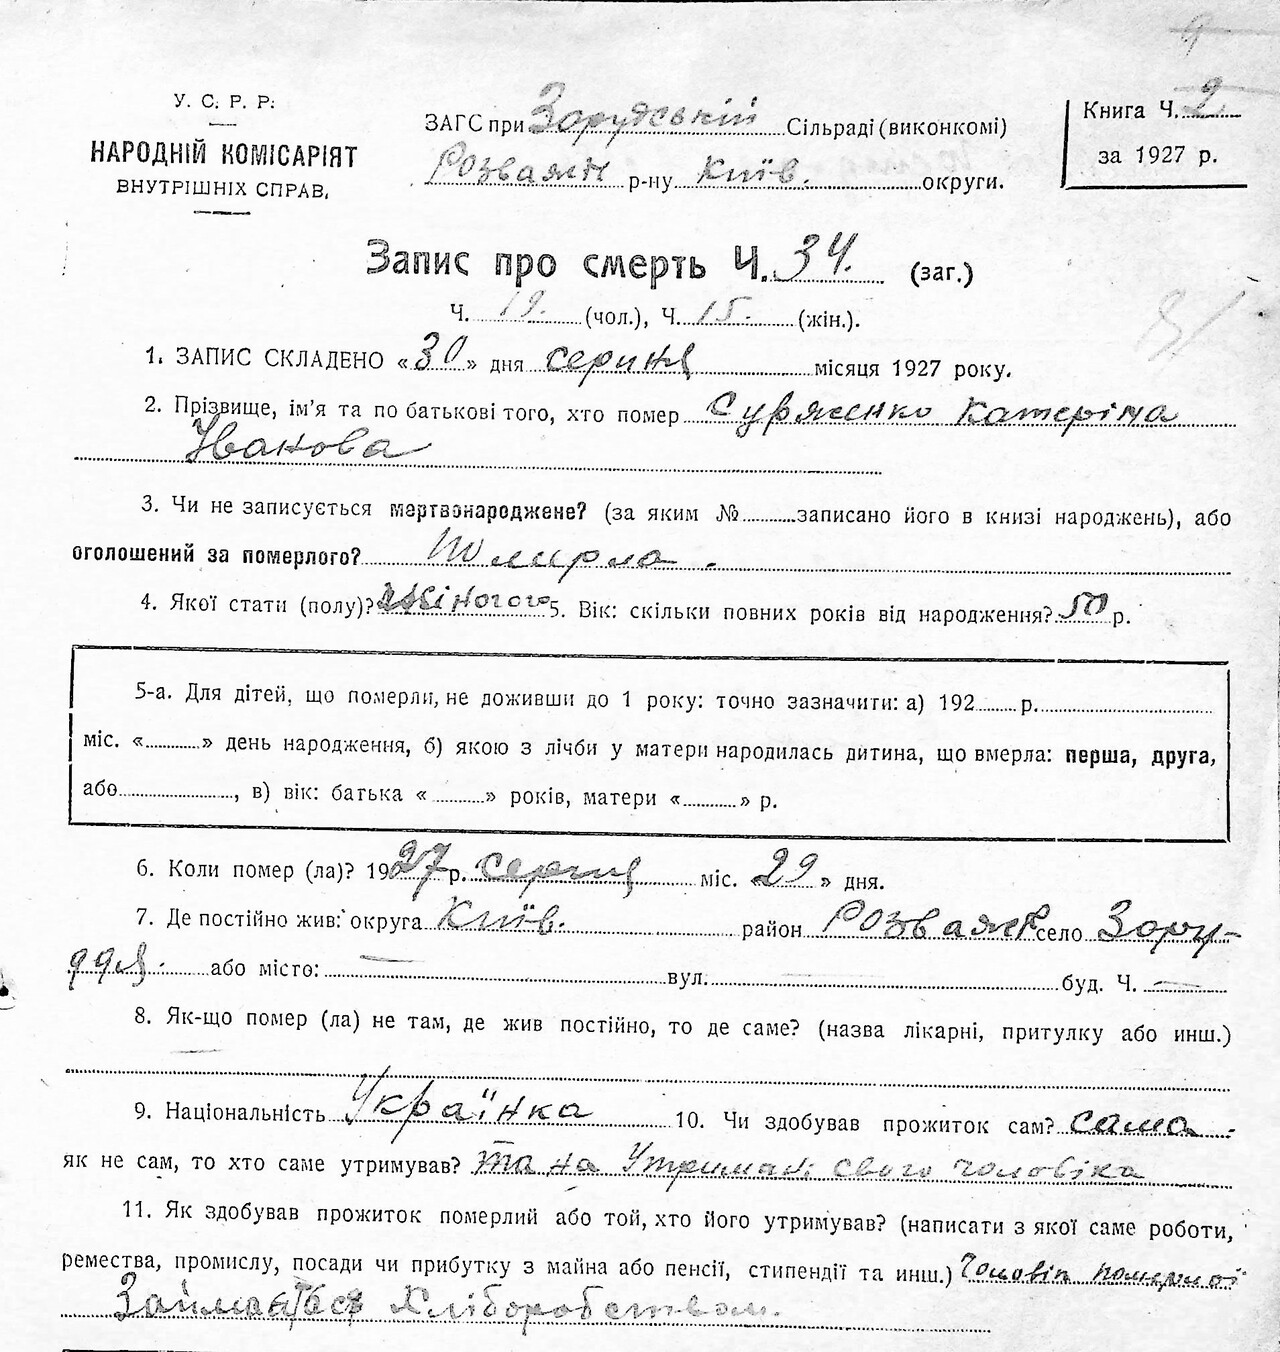 У. С. Р. Р.
НАРОДНІЙ КОМІСАРІЯТ
ВНУТРІШНІХ СПРАВ.
ЗАГС при Зорудській Сільраді (виконкомі)
Розважн р-ну Київ. округи.
Книга Ч. 2
за 1927 р.
Запис про смерть Ч. 34. (заг.)
Ч. 19. (чол.), Ч. 15. (жін.).
1. ЗАПИС СКЛАДЕНО «30» дня серпня місяця 1927 року.
2. Прізвище, ім'я та по батькові того, хто помер Суряженко Катеріна
Іванова
3. Чи не записується мертвонароджене? (за яким № записано його в книзі народжень), або
оголошений за померлого? Помирла.
4. Якої стати (полу)? жіночого 5. Вік: скільки повних років від народження? 50 р.
5-а. Для дітей, що померли, не доживши до 1 року: точно зазначити: а) 192 р.
міс. « » день народження, б) якою з лічби у матери народилась дитина, що вмерла: перша, друга,
або , в) вік: батька « » років, матери « » р.
6. Коли помер (ла)? 1927 р. серпня міс. «29» дня.
7. Де постійно жив: округа Київ. район Розваж село Зору-
ддя. або місто: — вул. — буд. Ч. —
8. Як-що помер (ла) не там, де жив постійно, то де саме? (назва лікарні, притулку або инш.)
—
9. Національність Українка 10. Чи здобував прожиток сам? сама
як не сам, то хто саме утримував? та на Утримані свого чоловіка
11. Як здобував прожиток померлий або той, хто його утримував? (написати з якої саме роботи,
ремества, промислу, посади чи прибутку з майна або пенсії, стипендії та инш.) Чоловік померлої
Займається Хліборобством.